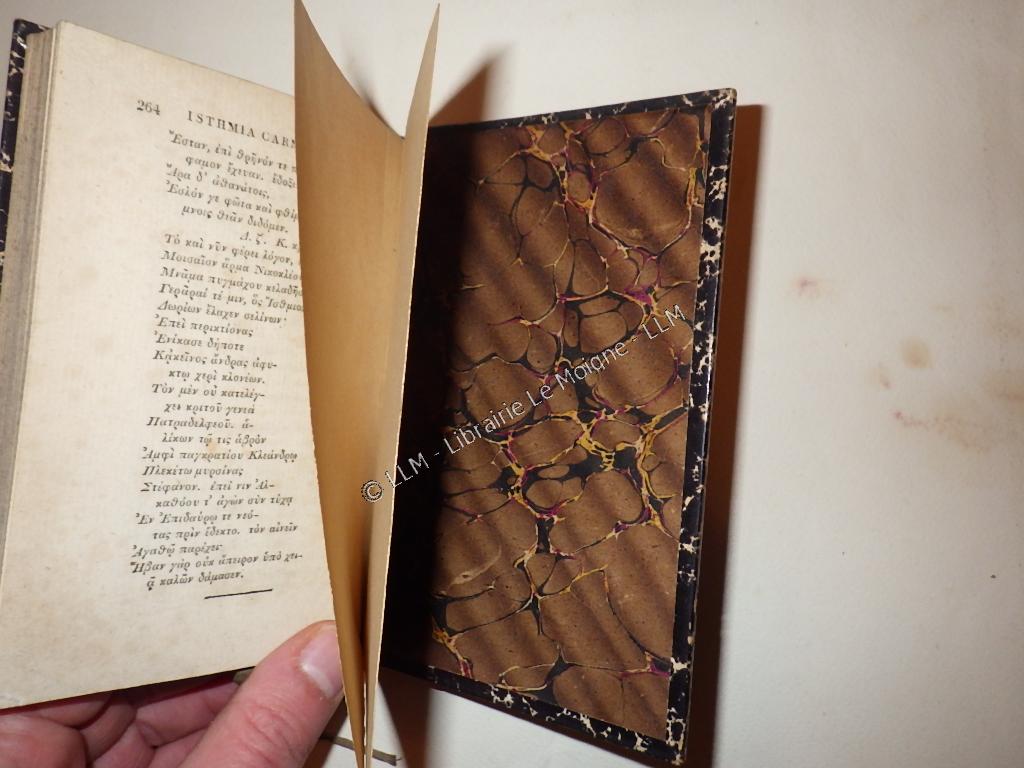 264 ISTHMIA CAR
Ἔσταν, ἐπὶ θρῆνόν τε
φαμον ἔχευαν. ἔδοξε
Ἄρα δ' ἀθανάτοις,
Ἐσλόν γε φῶτα καὶ φθί
μνοις θεᾶν διδόμεν.
Δ. ζ. Κ.
Τὸ καὶ νῦν φέρει λόγον,
Μοισαῖον ἅρμα Νικοκλέο
Μνᾶμα πυγμάχου κελαδῆ
Γεράραί τέ μιν, ὃς Ἴσθμιο
Δωρίων ἔλαχεν σελίνων·
Ἐπεὶ περικτίονας
Ἐνίκασε δήποτε
Κἀκεῖνος ἄνδρας ἀφυ-
κτῳ χερὶ κλονέων.
Τὸν μὲν οὐ κατελέγ-
χει κριτοῦ γενεὰ
Πατραδελφεοῦ. ἁ-
λίκων τῷ τις ἁβρὸν
Ἀμφὶ παγκρατίου Κλεάνδρῳ
Πλεκέτω μυρσίνας
Στέφανον. ἐπεί νιν Ἀλ-
καθόου τ' ἀγὼν σὺν τύχᾳ
Ἐν Ἐπιδαύρῳ τε νεό-
τας πρὶν ἔδεκτο. τὸν αἰνεῖν
Ἀγαθῷ παρέχει·
Ἥβαν γὰρ οὐκ ἄπειρον ὑπὸ χει-
ᾷ καλῶν δάμασεν.
© LLM - Librairie Le Moigne - LLM